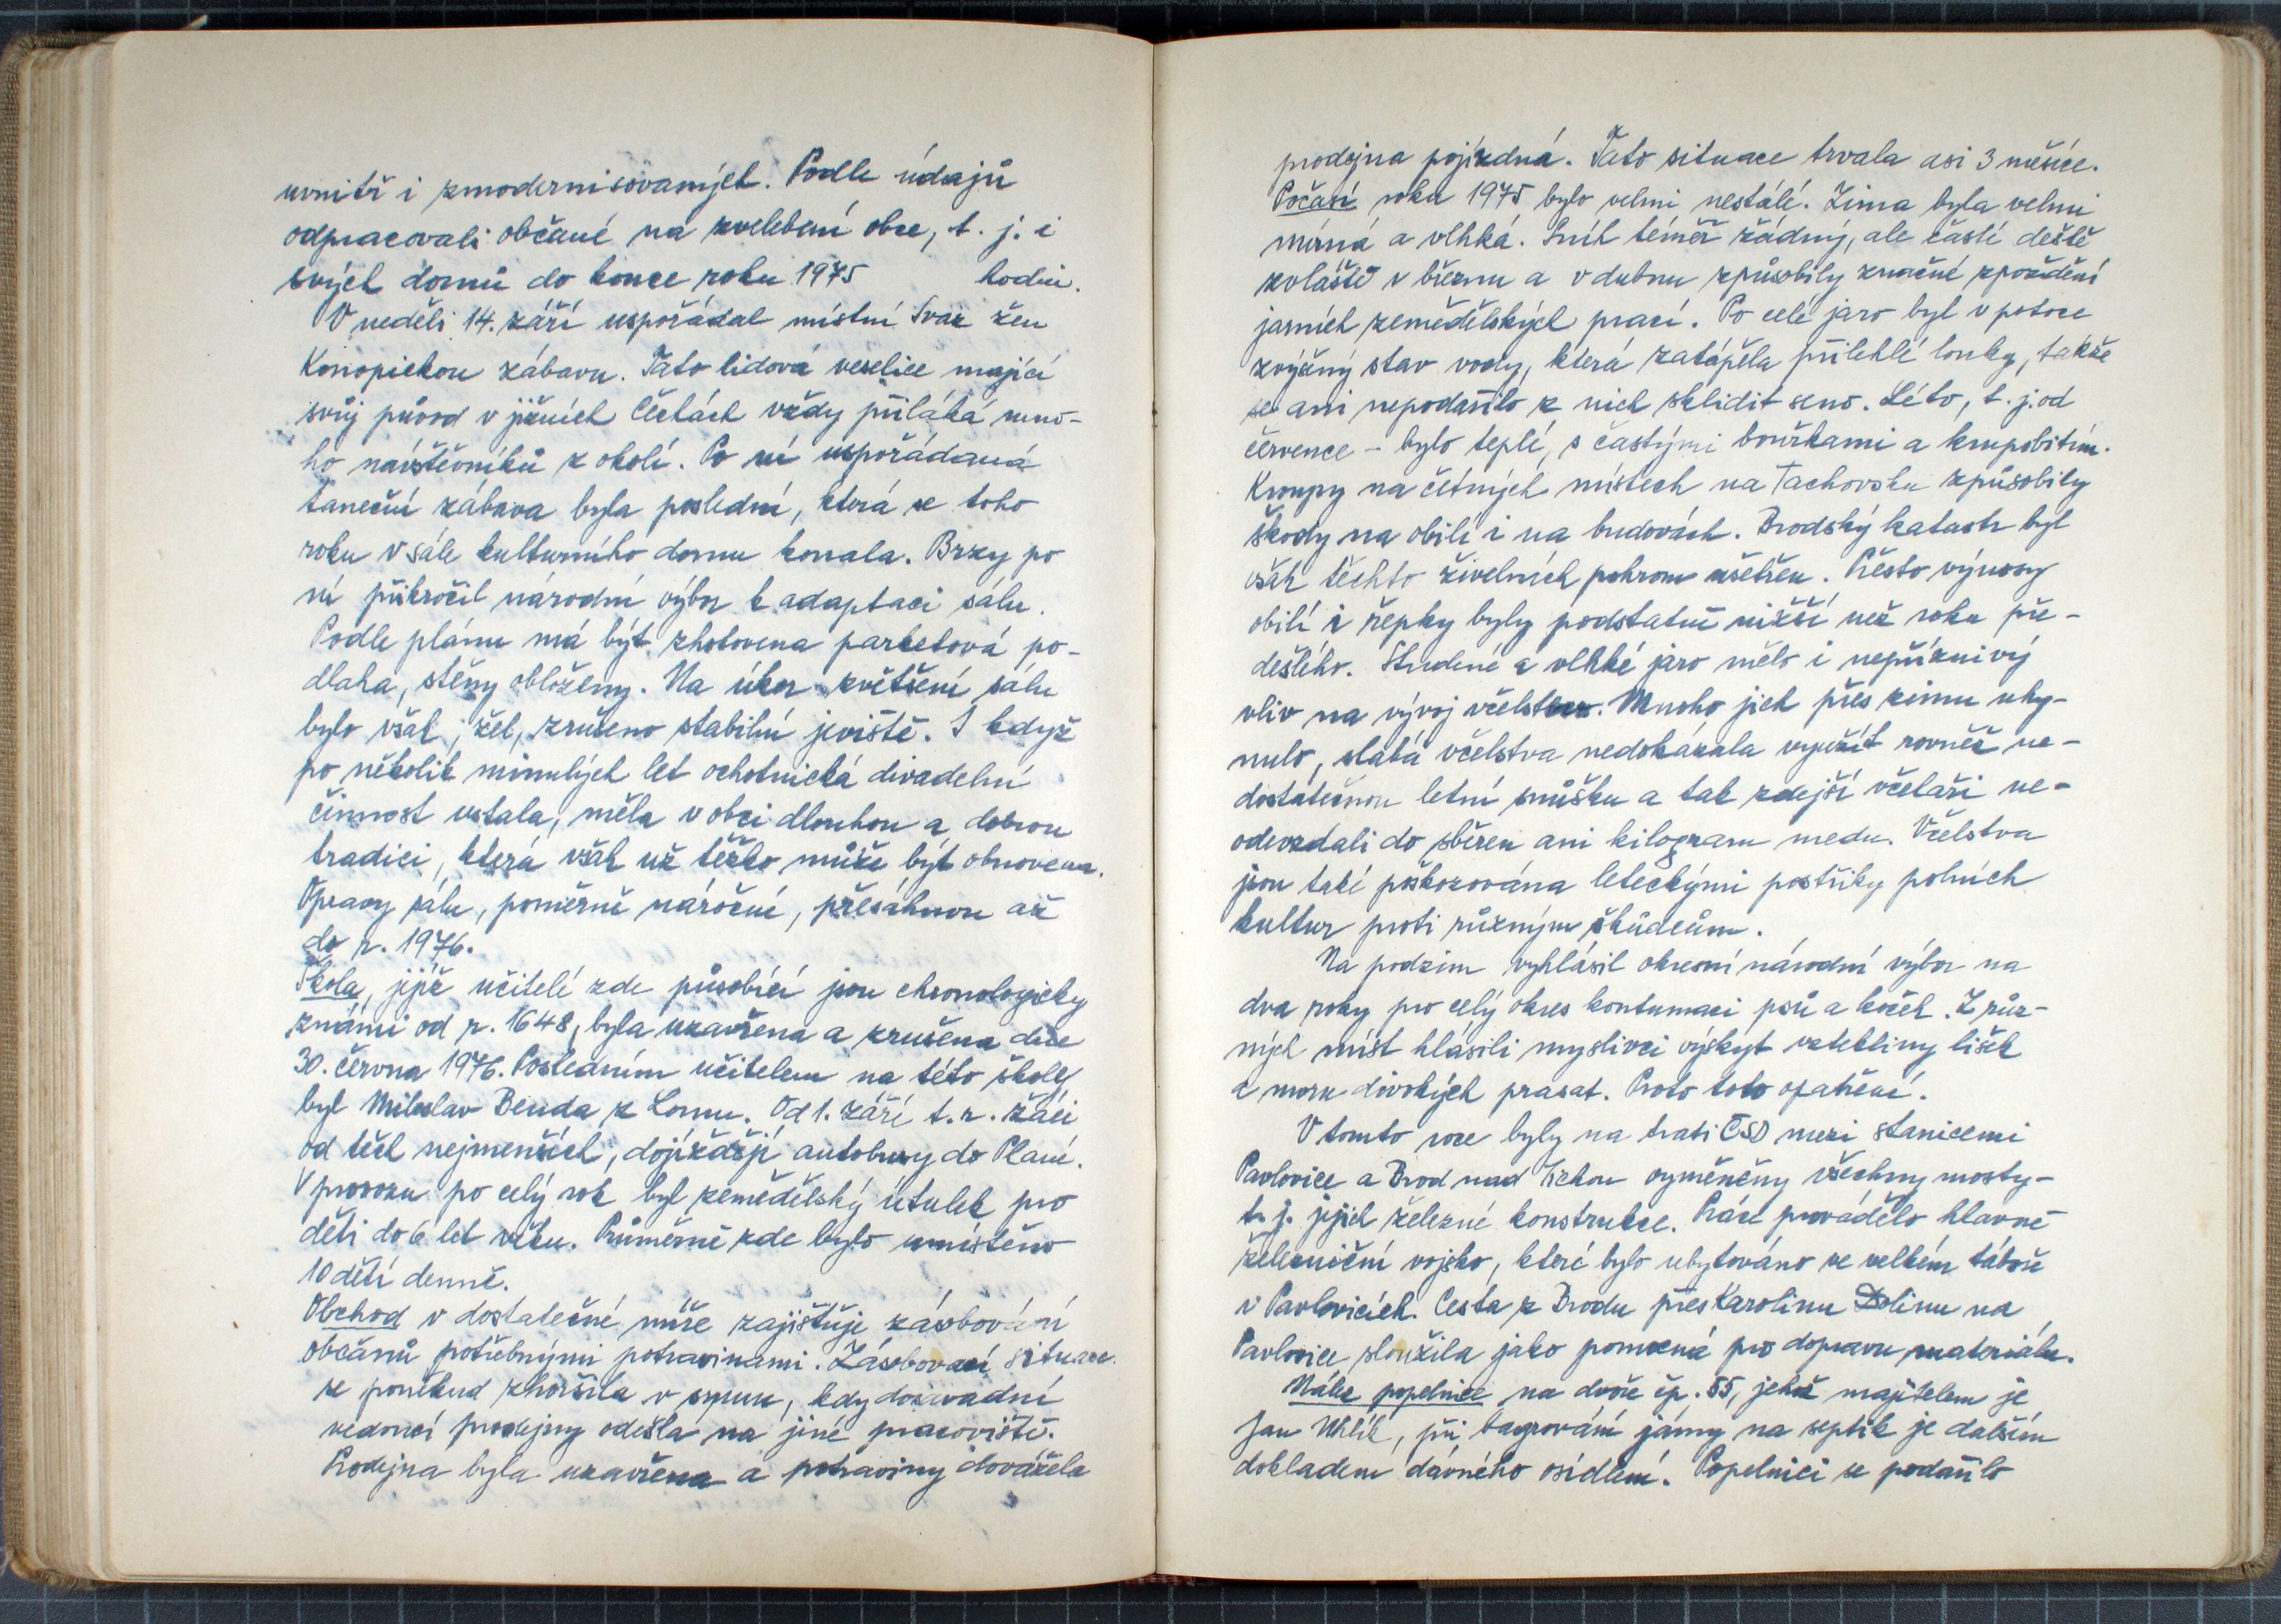 uvnitř i zmodernisovaných. Podle údajů
odpracovali občané na zvelebení obce, t. j. i
svých domů do konce roku 1975 hodin.
V neděli 14. září uspořádal místní Svaz žen
Konopickou zábavu. Tato lidová veselice mající
svůj původ v jižních Čechách vždy přiláká mno-
ho návštěvníků z okolí. Po ní uspořádaná
taneční zábava byla poslední, která se toho
roku v sále kulturního domu konala. Brzy po
ní přikročil národní výbor k adaptaci sálu.
Podle plánu má být zhotovena parketová po-
dlaha, stěny obloženy. Na úkor zvětšení sálu
bylo však, žel, zrušeno stabilní jeviště. I když
po několik minulých let ochotnická divadelní
činnost ustala, měla v obci dlouhou a dobrou
tradici, která však už těžko může být obnovena.
Opravy sálu, poměrně náročné, přesáhnou až
do r. 1976.
Škola, jejíž učitelé zde působící jsou chronologicky
známi od r. 1648, byla uzavřena a zrušena dne
30. června 1976. Posledním učitelem na této školy
byl Miloslav Benda z Lomu. Od 1. září t. r. žáci
od těch nejmenších, dojíždějí autobusy do Plané.
V provozu po celý rok byl zemědělský útulek pro
děti do 6 let věku. Průměrně zde bylo umístěno
10 dětí denně.
Obchod v dostatečné míře zajištuje zásobování
občanů potřebnými potravinami. Zásobovací situace
se poněkud zhoršila v srpnu, kdy dosavadní
vedoucí prodejny odešla na jiné pracoviště.
Prodejna byla uzavřena a potraviny dovážela
prodejna pojízdná. Tato situace trvala asi 3 měsíce.
Počasí roku 1975 bylo velmi nestálé. Zima byla velmi
mírná a vlhká. Sníh téměř žádný, ale časté deště
zvláště v březnu a v dubnu způsobily značné zpoždění
jarních zemědělských prací. Po celé jaro byl v potoce
zvýšený stav vody, která zatápěla přilehlé louky, takže
se ani nepodařilo z nich sklidit seno. Léto, t. j. od
července - bylo teplé, s častými bouřkami a krupobitím.
Kroupy na četných místech na Tachovsku způsobily
škody na obilí i na budovách. Brodský katastr byl
však těchto živelních pohrom ušetřen. Přesto výnosy
obilí i řepky byly podstatně nižší než roku pře-
dešlého. Studené a vlhké jaro mělo i nepříznivý
vliv na vývoj včelstev. Mnoho jich přes zimu uhy-
nulo, slabá včelstva nedokázala využít rovněž ne-
dostatečnou letní snůšku a tak zdejší včelaři ne-
odevzdali do sběren ani kilogram medu. Včelstva
jsou také poškozována leteckými postřiky polních
kultur proti různým škůdcům.
Na podzim vyhlásil okresní národní výbor na
dva roky pro celý okres kontumaci psů a koček. Z růz-
ných míst hlásili myslivci výskyt vztekliny lišek
a moru divokých prasat. Proto toto opatření.
V tomto roce byly na trati ČSD mezi stanicemi
Pavlovice a Brod nad Tichou vyměněny všechny mosty-
t. j. jejich železné konstrukce. Práce provádělo hlavně
železniční vojsko, které bylo ubytováno ve velkém táboře
v Pavlovicích. Cesta z Brodu přes Karolinu Dolinu na
Pavlovice sloužila jako pomocná pro dopravu materiálu.
Nález popelnice na dvoře čp. 55, jehož majitelem je
Jan Uhlík, při bagrování jámy na septik je dalším
dokladem dávného osídlení. Popelnici se podařilo